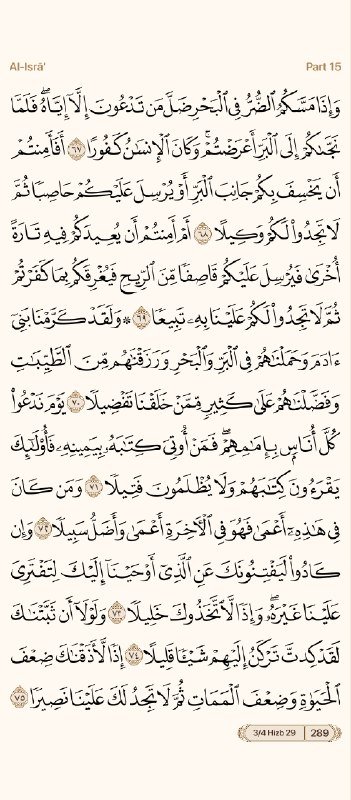 Al-Isrā' Part 15
وَإِذَا مَسَّكُمُ ٱلضُّرُّ فِي ٱلْبَحْرِ ضَلَّ مَن تَدْعُونَ إِلَّآ إِيَّاهُۖ فَلَمَّا
نَجَّىٰكُمْ إِلَى ٱلْبَرِّ أَعْرَضْتُمْۚ وَكَانَ ٱلْإِنسَٰنُ كَفُورًا ٦٧ أَفَأَمِنتُمْ
أَن يَخْسِفَ بِكُمْ جَانِبَ ٱلْبَرِّ أَوْ يُرْسِلَ عَلَيْكُمْ حَاصِبًا ثُمَّ
لَا تَجِدُوا۟ لَكُمْ وَكِيلًا ٦٨ أَمْ أَمِنتُمْ أَن يُعِيدَكُمْ فِيهِ تَارَةً
أُخْرَىٰ فَيُرْسِلَ عَلَيْكُمْ قَاصِفًا مِّنَ ٱلرِّيحِ فَيُغْرِقَكُم بِمَا كَفَرْتُمْ
ثُمَّ لَا تَجِدُوا۟ لَكُمْ عَلَيْنَا بِهِۦ تَبِيعًا ٦٩ ۞ وَلَقَدْ كَرَّمْنَا بَنِيٓ
ءَادَمَ وَحَمَلْنَٰهُمْ فِي ٱلْبَرِّ وَٱلْبَحْرِ وَرَزَقْنَٰهُم مِّنَ ٱلطَّيِّبَٰتِ
وَفَضَّلْنَٰهُمْ عَلَىٰ كَثِيرٍ مِّمَّنْ خَلَقْنَا تَفْضِيلًا ٧٠ يَوْمَ نَدْعُوا۟
كُلَّ أُنَاسٍۭ بِإِمَٰمِهِمْۖ فَمَنْ أُوتِيَ كِتَٰبَهُۥ بِيَمِينِهِۦ فَأُو۟لَٰٓئِكَ
يَقْرَءُونَ كِتَٰبَهُمْ وَلَا يُظْلَمُونَ فَتِيلًا ٧١ وَمَن كَانَ
فِي هَٰذِهِۦٓ أَعْمَىٰ فَهُوَ فِي ٱلْأٓخِرَةِ أَعْمَىٰ وَأَضَلُّ سَبِيلًا ٧٢ وَإِن
كَادُوا۟ لَيَفْتِنُونَكَ عَنِ ٱلَّذِيٓ أَوْحَيْنَآ إِلَيْكَ لِتَفْتَرِيَ
عَلَيْنَا غَيْرَهُۥۖ وَإِذًا لَّٱتَّخَذُوكَ خَلِيلًا ٧٣ وَلَوْلَآ أَن ثَبَّتْنَٰكَ
لَقَدْ كِدتَّ تَرْكَنُ إِلَيْهِمْ شَيْـًٔا قَلِيلًا ٧٤ إِذًا لَّأَذَقْنَٰكَ ضِعْفَ
ٱلْحَيَوٰةِ وَضِعْفَ ٱلْمَمَاتِ ثُمَّ لَا تَجِدُ لَكَ عَلَيْنَا نَصِيرًا ٧٥
3/4 Hizb 29 289